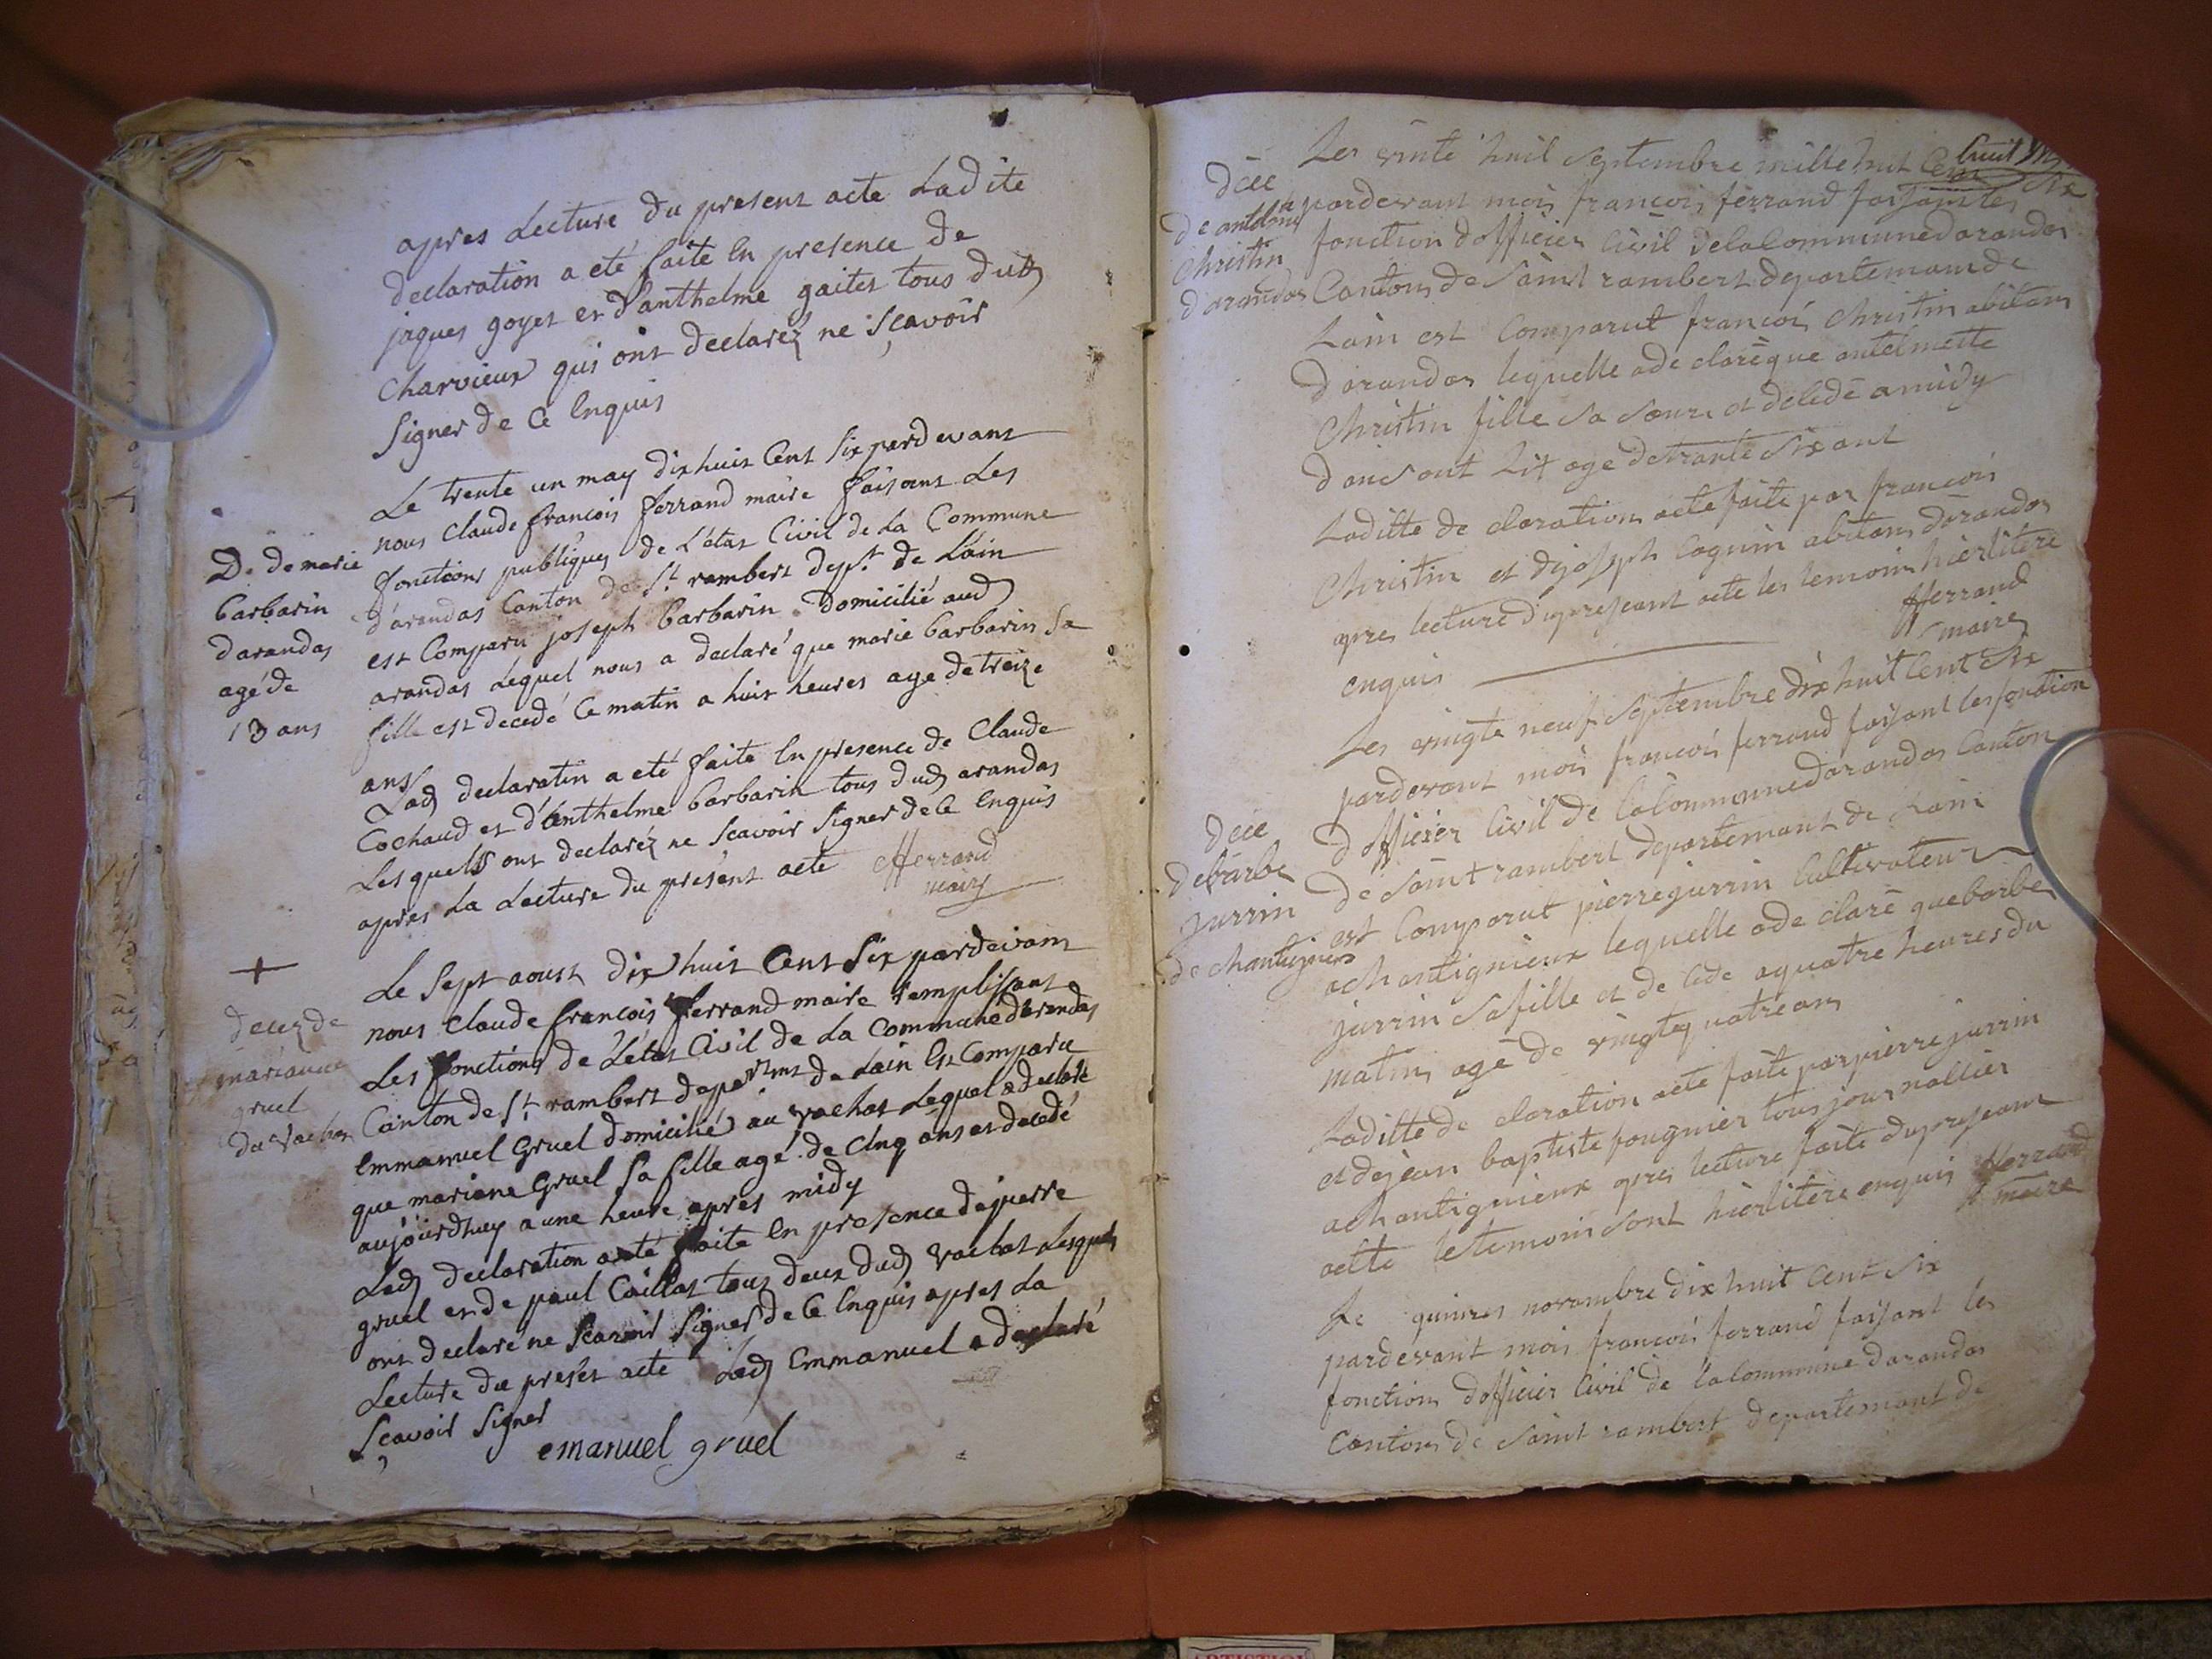 apres Lecture du present acte Ladite
declaration a eté faite en presence de
jaques goyet et d'anthelme gaitet tous dud
Charvieux qui ont declaréz ne sçavoir
signer de ce enquis
De de marie
barbarin
darandas
agé de
13 ans
Le trente un may dix huit Cent Six pardevant
nous Claude francois ferrand maire faisant Les
fonctions publiques de L'état Civil de la Commune
d'arandas Canton de St rambert dept. de L'ain
est Comparu joseph barbarin domicilié aud
arandas Lequel nous a declaré que marie barbarin sa
fille est decedé Ce matin a huit heures age de treize
ans
Lad declaratin a eté faite en presence de Claude
Cochaud et d'enthelme barbarin tous dud arandas
Lesquels ont declaréz ne scavoir signer de ce enquis
apres La Lecture du présent acte fferrand
maire
+
decez de
mariane
gruel
du vachat
Le Sept aoust dix huit Cent Six pardevant
nous Claude francois ferrand maire remplissant
Les fonctions de L'état Civil de La Commune d'arandas
Canton de St rambert department de Lain est Comparu
Emmanuel Gruel domicilié au vachat Lequel a declaré
que mariane Gruel sa fille agé de Cinq ans est decedé
aujourdhuy a une heure apres midy
Lad declaration a eté faite en presence de pierre
gruel et de paul Caillat tous deux dud vachat Lesquels
ont declaré ne scavoir signer de Ce enquis apres La
Lecture du present acte Led Emmanuel a declaré
Scavoir Signer
emanuel gruel
décé
de antelme
Christin
d'arandas
Les vinte huit septembre mille huit Cent six
pardevant moi francois ferrand faisant les
fonction dofficier Civil delaCommunedarandas
Canton de saint rambert departemam de
Lain est Comparut francois Christin abitans
darandas lequelle a de claré que antelmette
Christin fille sa soeur et decede a midy
dans sont Lit age detrante six ant
Laditte de claration a eté faite par francois
Christin et dejoseph Cognin abitans darandas
apres lecture dupresant acte les temoin hierlitere
enquis fferrand
maire
décé
debarbe
jurrin
de chantignieux
Les vingte neuf septembre dix huit Cent six
pardevant moi francois ferrand faisant lesfonction
dofficier Civil de laCommunedarandas Canton
de saint rambert departemant de Lain
est Comparut pierre jurrin Cultivateur
achantignieux lequelle a de claré quebarbe
jurrin safille et de cede aquatre heures du
matin agé de vingtequatre ans
Laditte de claration a eté faite parpierre jurrin
et dejean baptiste fougnier tous journallier
achantignieux apres lecture faite dupresant
actte letemoin sont hierlitere enquis fferrand
maire
Le quinzes novembre dix huit Cent six
pardevant moi francois ferrand faisant les
fonction dofficier Civil de la Commune darandas
Canton de saint rambert departemant de